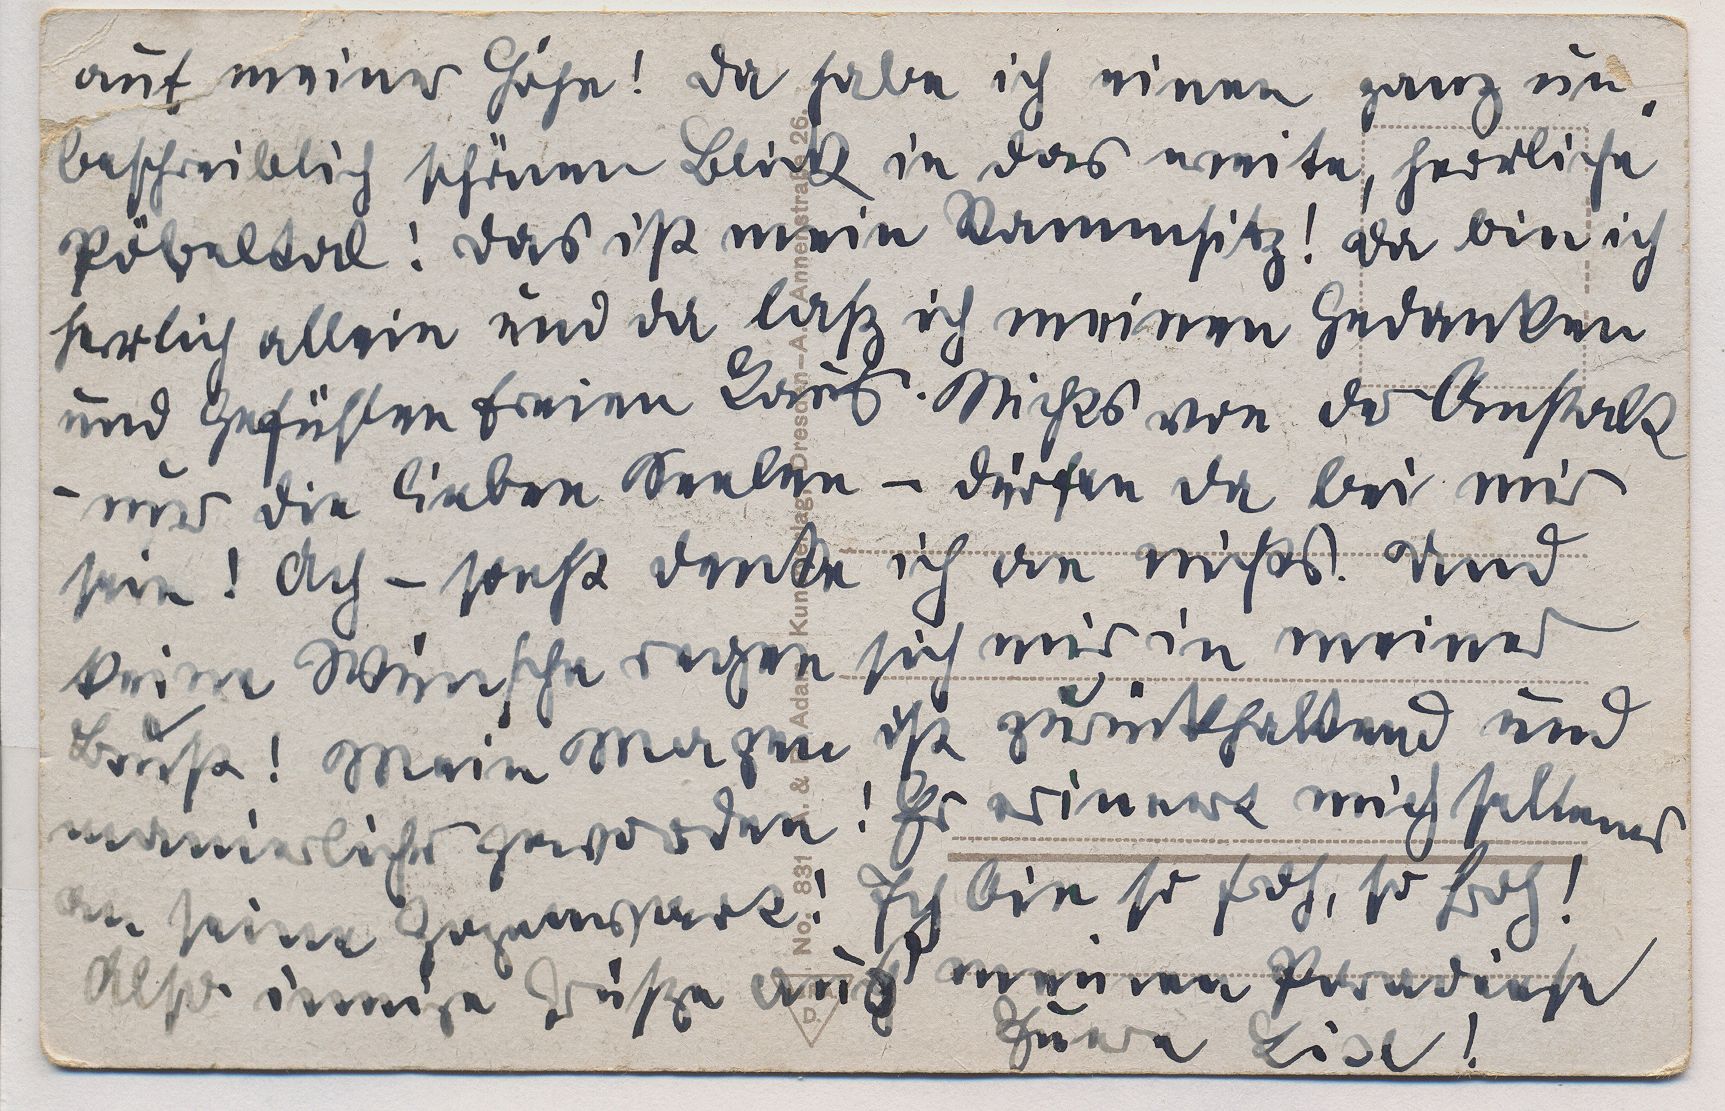 auf meiner Höhe! Da habe ich einen ganz un-
beschreiblich schönen Blick in das weite, herrliche
Pöbeltal! Das ist mein Stammsitz! Da bin ich
herrlich allein und da laß ich meinen Gedanken
und Gefühlen freien Lauf. Nichts von der Anstalt
- nur die lieben Seelen - dürfen da bei mir
sein! Ach - sonst denke ich an nichts. Und
keine Wünsche regen sich mir in meiner
Brust! Mein Magen ist zurückhaltend und
manierlicher geworden! Er erinnert mich seltener
an seine Gegenwart! Ich bin so froh, so froh!
Also innige Grüße aus meinen Paradiese
Eure Lisl!
No. 831 A. & R. Adam, Kunstverlag, Dresden-A. Annenstraße 26.
D.